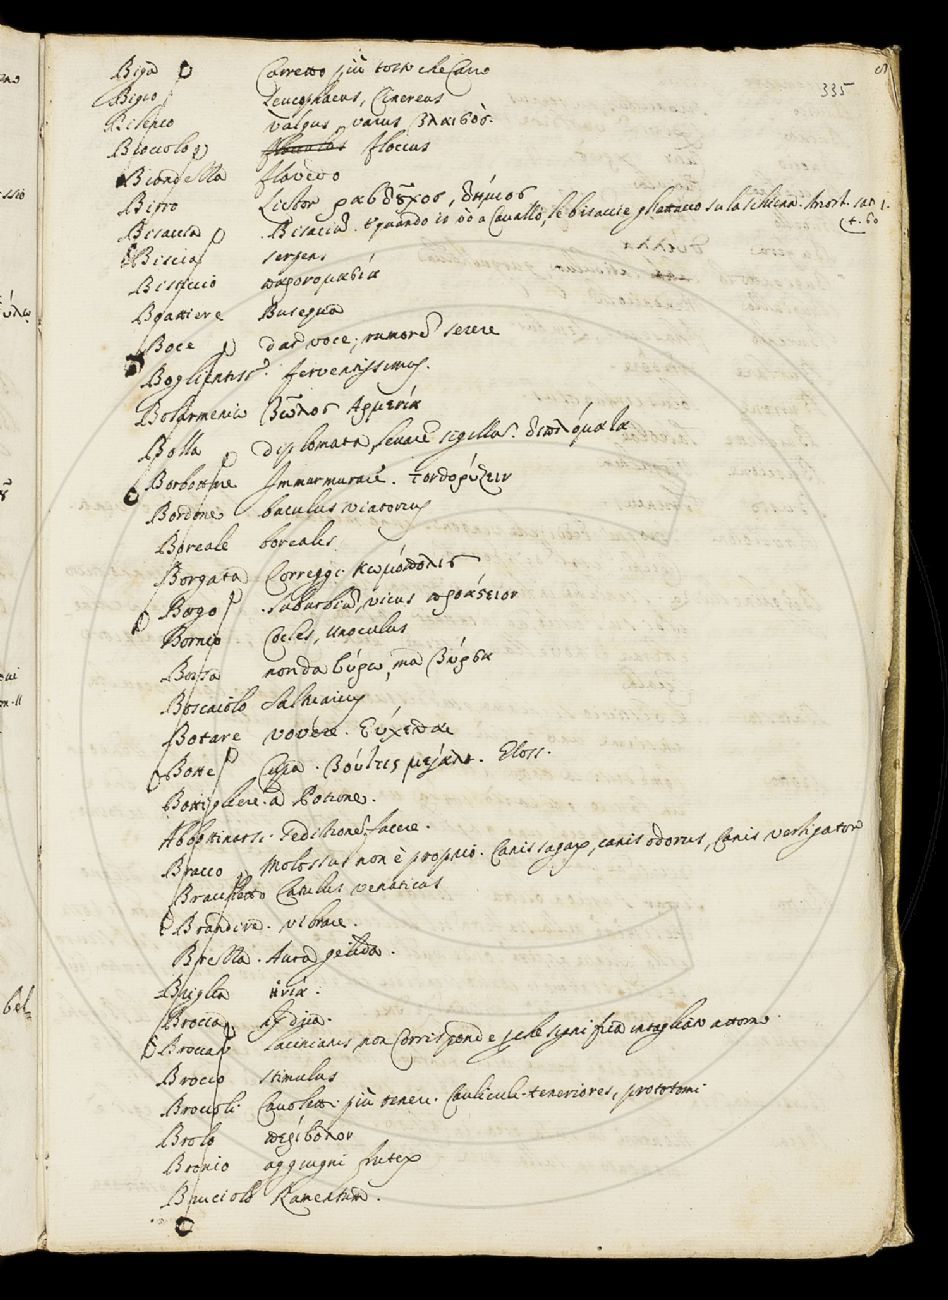 335
Biga Carretto più tosto che Carro
Bigio Leucophaeus, Cinereus
Bilenco valgus, varus βλαισός.
Bioccolo floccus
Biondella
Birro Lictor ραβδȣ̃χος, δήμιος
Bisaccia Bisaccia. E quando io vò a Cavallo, le bisaccie su la schiena.
Biscia serpens
Bisticcio παρονομασία
Boattiere Busequa
Boce dar voce, rumores serere
Boglientiss. ferventissimus.
Bolarmenio βῶλος Αρμενία
Bolla diplomata, levare sigilla.
Borbottare Immurmurare. τονθορύζειν
Bordone baculus viatorius
Boreale borealis.
Borgata Correggi. κωμόπολις
Borgo suburbia, vicus προάςειον
Bornio Cocles, unoculus
Borsa non da βύρσω, ma βύρσα
Boscaiolo Saltuarius
Botare vovere. Εύχεσθαι
Botte Cupa. Βούττις μεγάλη. Gloss.
Bottigliere. a Potione.
Abbottinarsi. Seditionem facere.
Bracco Molossus non è proprio. Canis sagax, canis odorus, Canis vestigator
Bracchetto Catulus venaticus
Brandire. vibrare.
Brezza. Aura gelida.
Briglia ἡνία.
Brocca
Broccato non Corrisponde
Brocco stimulus
Broccoli. Cavoletti più teneri. Cauliculi teneriores, prototomi
Brolo περίβολον
Bronco aggiugni frutex
Bruciolo Ramentum.